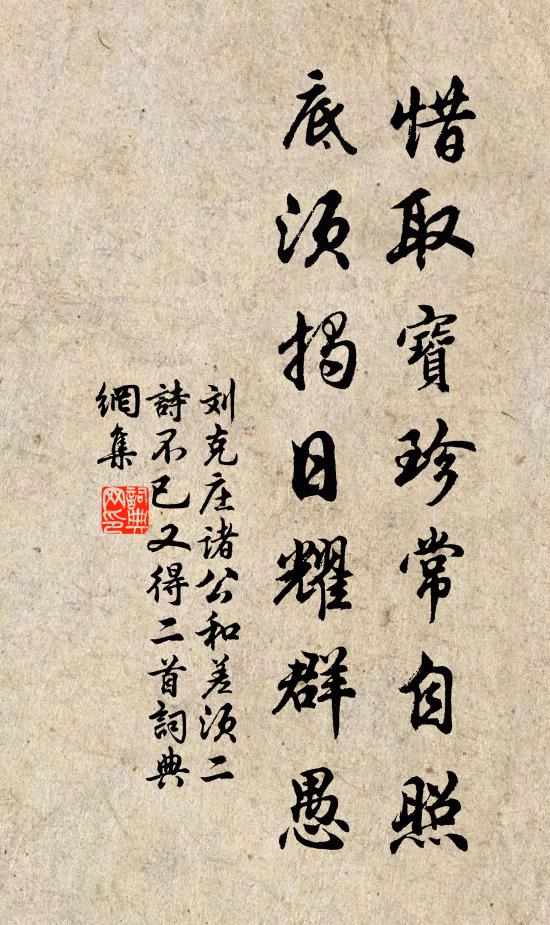 惜取寶珍常自照
底須揭日耀群愚
刘克庄诸公和差须二
詩不已又得二首詞典
網集
詞典
网印